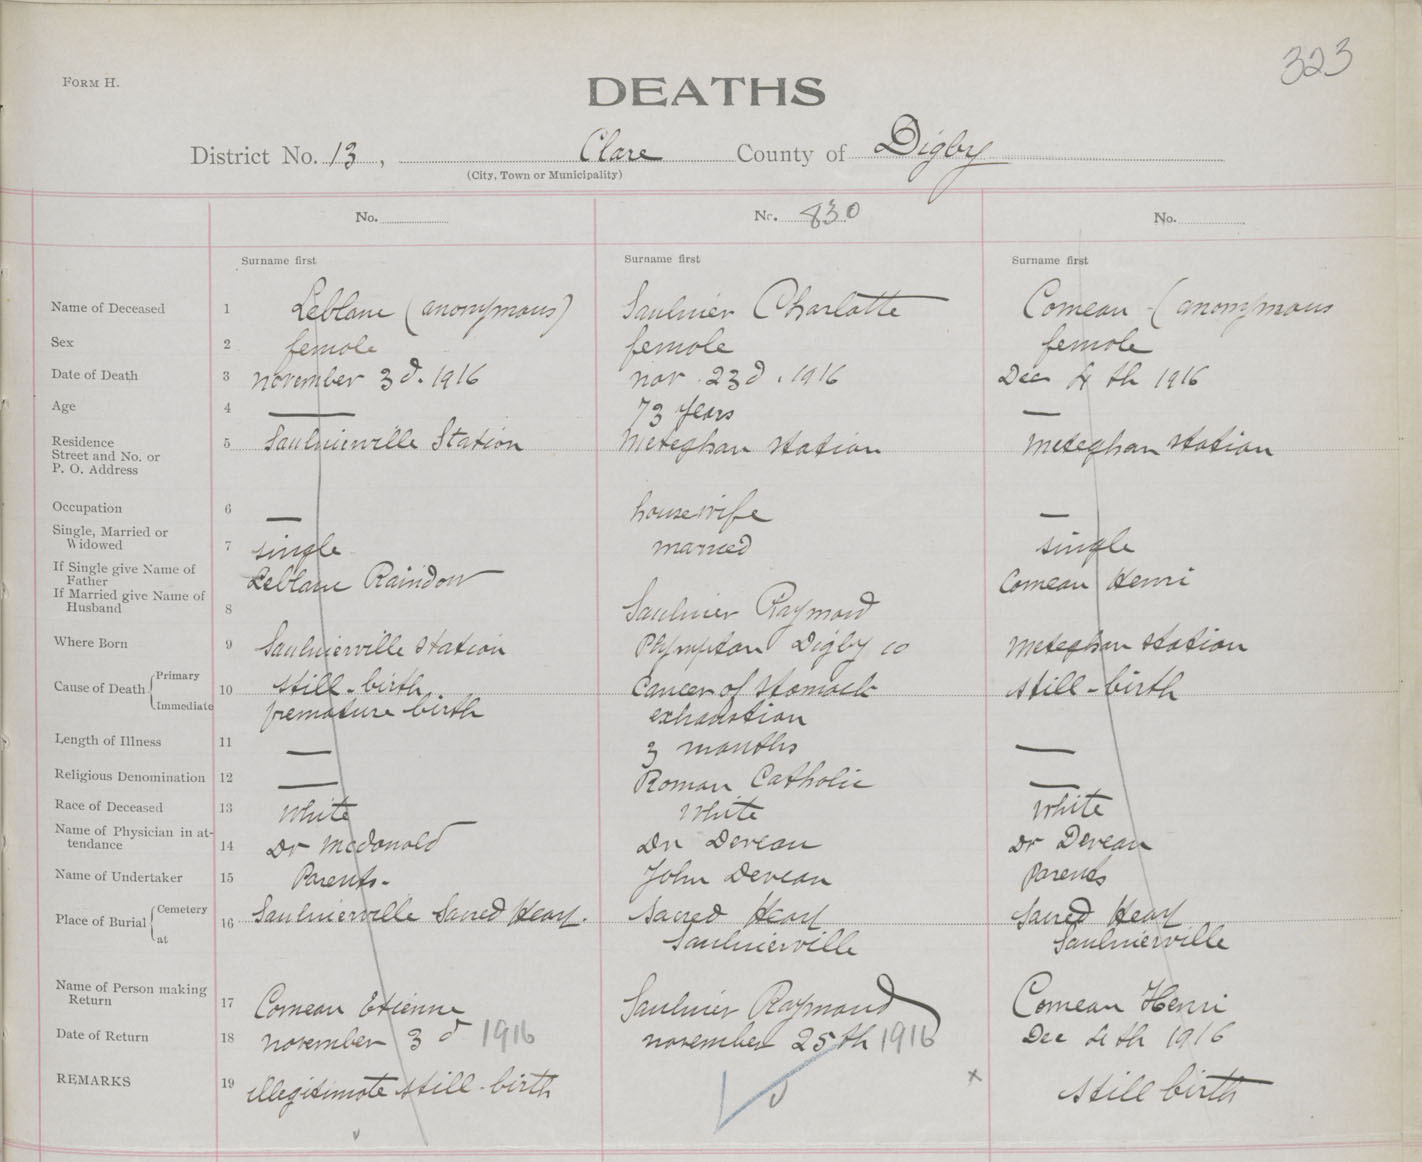 323
FORM H.
DEATHS
District No. 13, Clare County of Digby
(City, Town or Municipality)
No. No. 830 No.
Surname first Surname first Surname first
Name of Deceased 1 Leblanc (anonymous) Saulnier Charlotte Comeau - (anonymous
Sex 2 female female female
Date of Death 3 november 3d. 1916 nov. 23d. 1916 Dec 4th 1916
Age 4 — 73 years —
Residence 5 Saulnierville Station Meteghan station Meteghan station
Street and No. or
P. O. Address
Occupation 6 — housewife —
Single, Married or
Widowed 7 single married single
If Single give Name of
Father Leblanc Comeau Henri
If Married give Name of
Husband 8 Saulnier Raymond
Where Born 9 Saulnierville station Plympton Digby co Meteghan station
Cause of Death { Primary 10 still-birth Cancer of stomach still-birth
Immediate premature birth exhaustion
Length of Illness 11 — 3 months —
Religious Denomination 12 — Roman Catholic —
Race of Deceased 13 White White White
Name of Physician in at-
tendance 14 Dr McDonald Dr Deveau Dr Deveau
Name of Undertaker 15 Parents. John Deveau Parents
Place of Burial { Cemetery 16 Saulnierville Sacred Heart. Sacred Heart Sacred Heart
at Saulnierville Saulnierville
Name of Person making
Return 17 Comeau Etienne Saulnier Raymond Comeau Henri
Date of Return 18 november 3d 1916 november 25th 1916 Dec 4th 1916
REMARKS 19 illegitimate still-birth x still birth